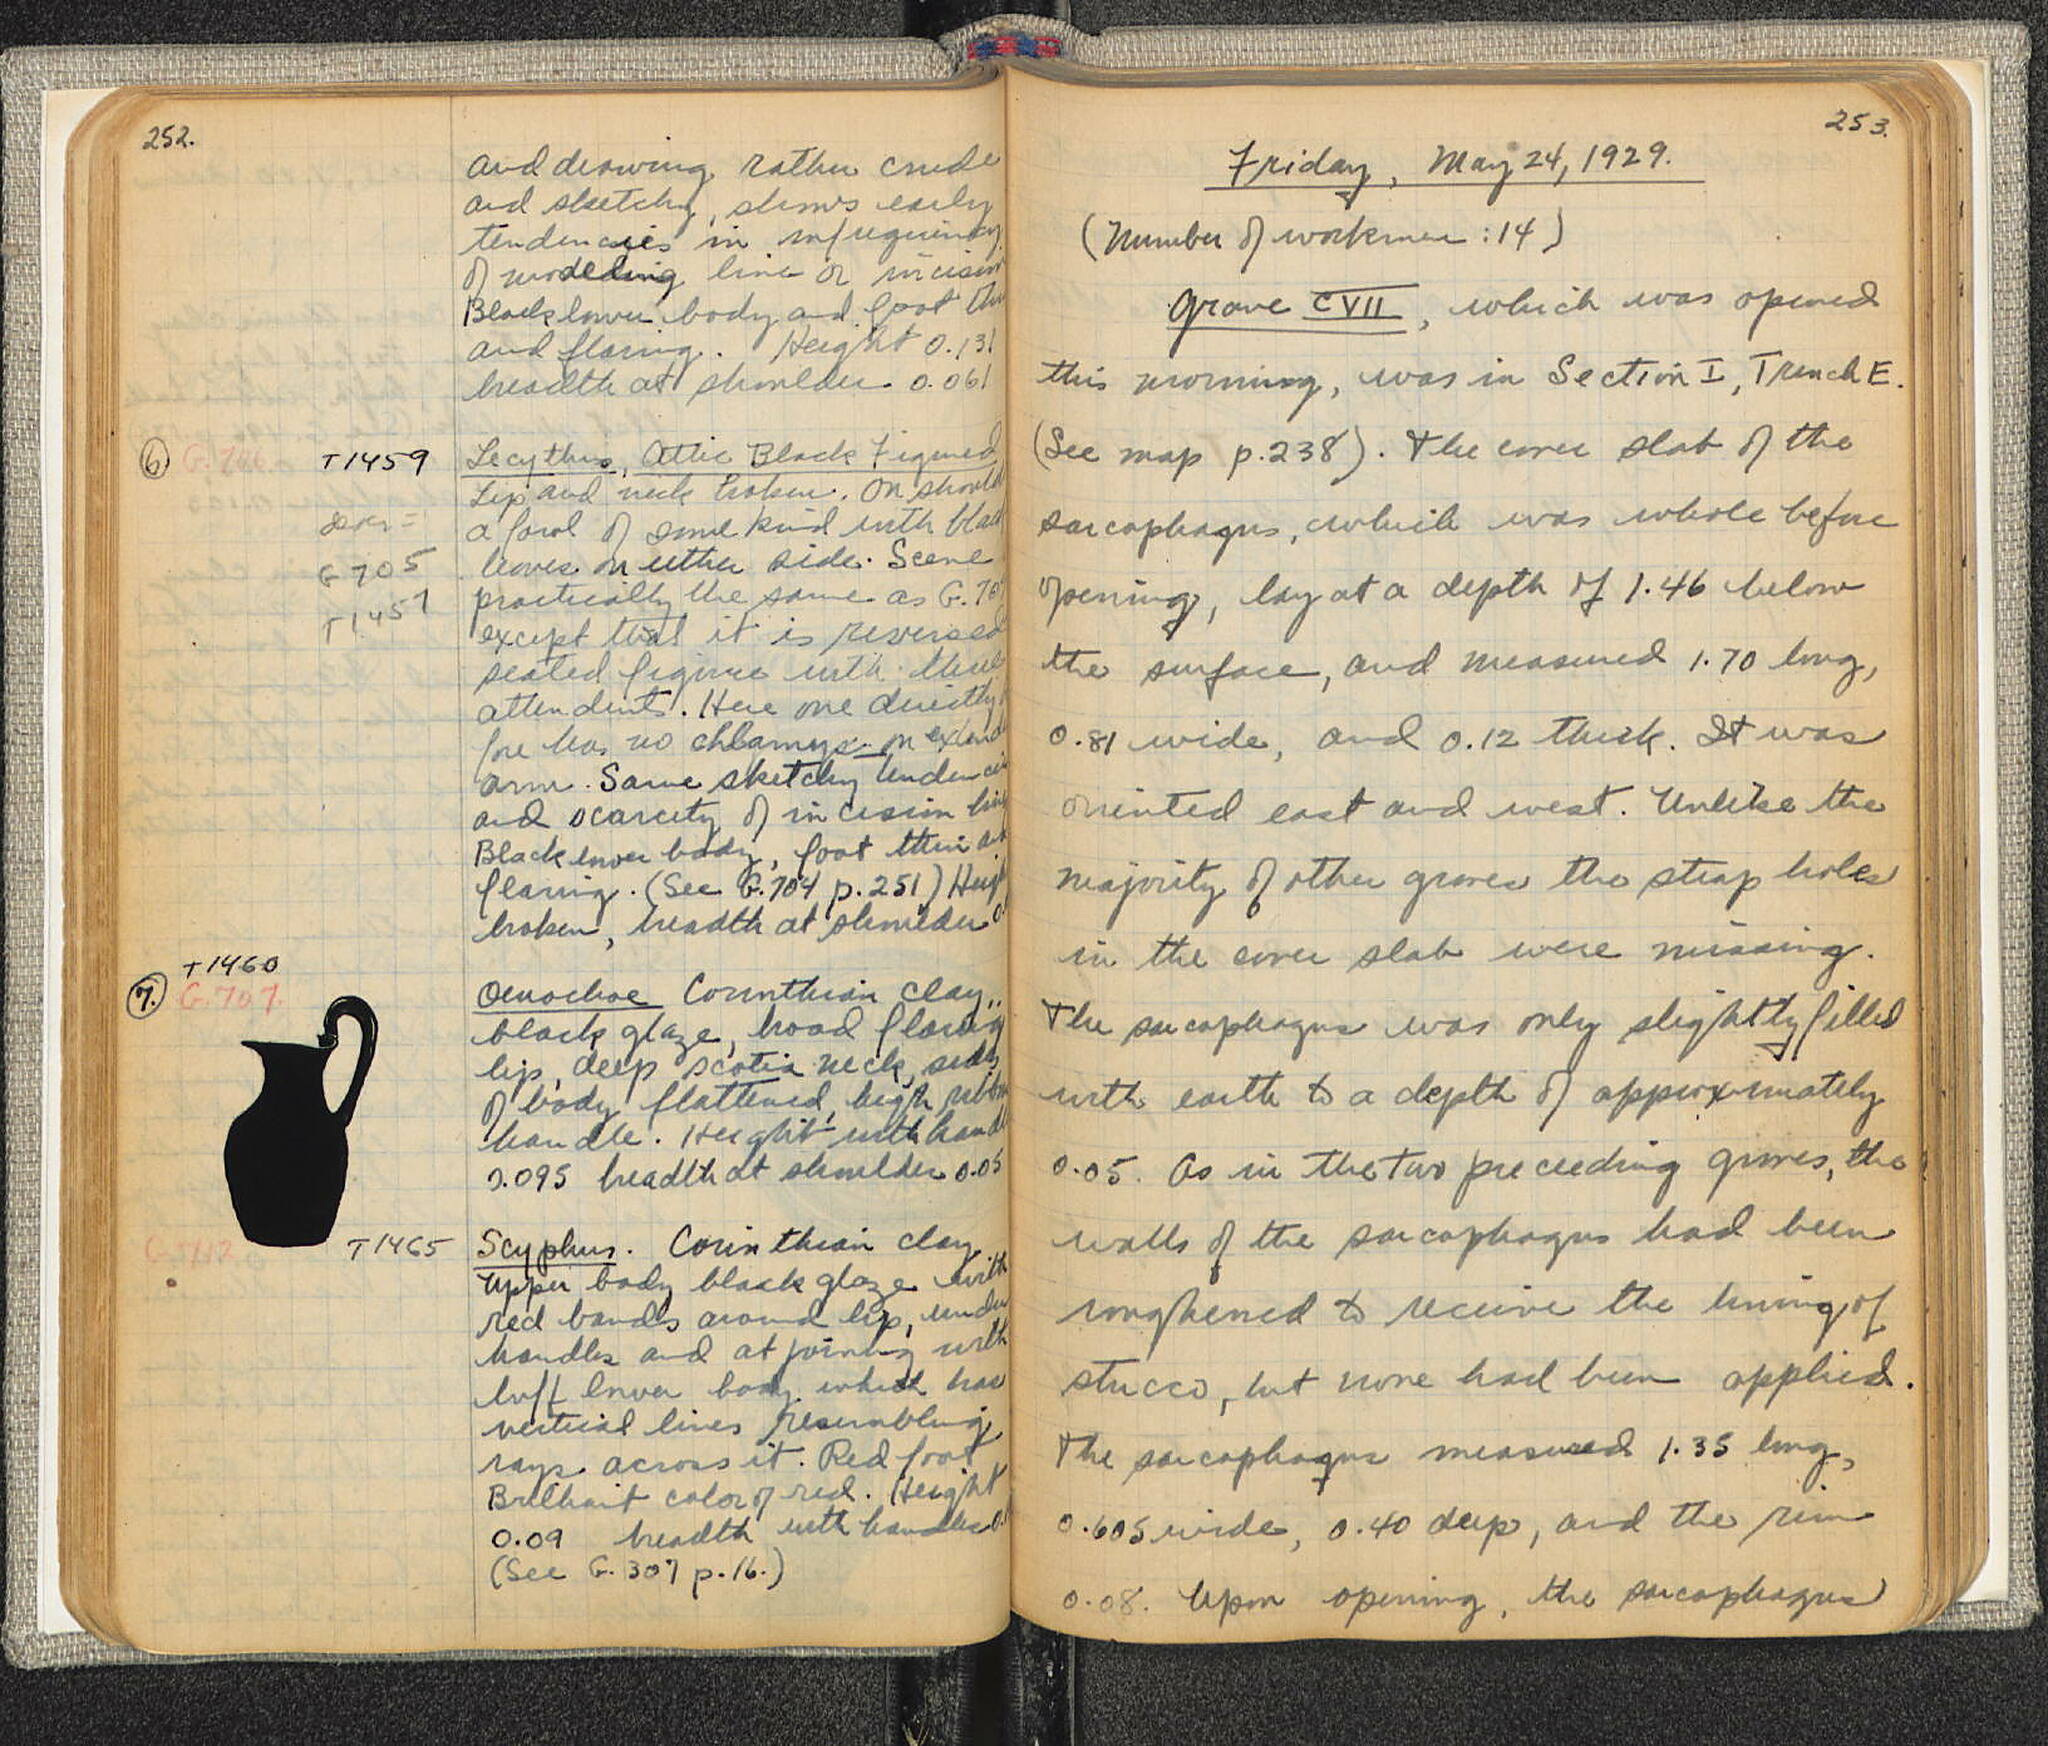 252.
and drawing rather crude
and sketchy, shows early
tendencies in infrequency
of modeling line or incision
Black lower body and foot thin
and flaring. Height 0.131
breadth at shoulder 0.061
⑥ G. 706 T1459 Lecythus, Attic Black Figured
Lip and neck broken. On should
a fowl of some kind with black
G 705 leaves on either side. Scene
T1457 practically the same as G. 705
except that it is reversed
seated figure with three
attendents. Here one directly
fore has no chlamys on extend
arm. Same sketchy tendencies
and scarcity of incision line
Black lower body, foot thin and
flaring. (See G. 704 p. 251) Heigh
broken, breadth at shoulder 0.
T1460
⑦ G. 707. Oenochoe Corinthian clay,
black glaze, broad flaring
lip, deep scotia neck, sides
of body flattened, high ribbon
handle. Height with handle
0.095 breadth at shoulder 0.05
T1465 Scyphus. Corinthian clay
Upper body black glaze with
red bands around lip, under
handles and at joining with
buff lower body which has
vertical lines resembling
rays across it. Red foot
Brilliant color of red. Height
0.09 breadth with handles 0.
(See G. 307 p. 16.)
253.
Friday, May 24, 1929.
(Number of workmen : 14)
Grave CVII, which was opened
this morning, was in Section I, Trench E.
(See map p. 238). The cover slab of the
sarcophagus, which was whole before
opening, lay at a depth of 1.46 below
the surface, and measured 1.70 long,
0.81 wide, and 0.12 thick. It was
oriented east and west. Unlike the
majority of other graves the strap holes
in the cover slab were missing.
The sarcophagus was only slightly filled
with earth to a depth of approximately
0.05. As in the two preceeding graves, the
walls of the sarcophagus had been
roughened to receive the lining of
stucco, but none had been applied.
The sarcophagus measured 1.35 long,
0.605 wide, 0.40 deep, and the rim
0.08. Upon opening, the sarcophagus